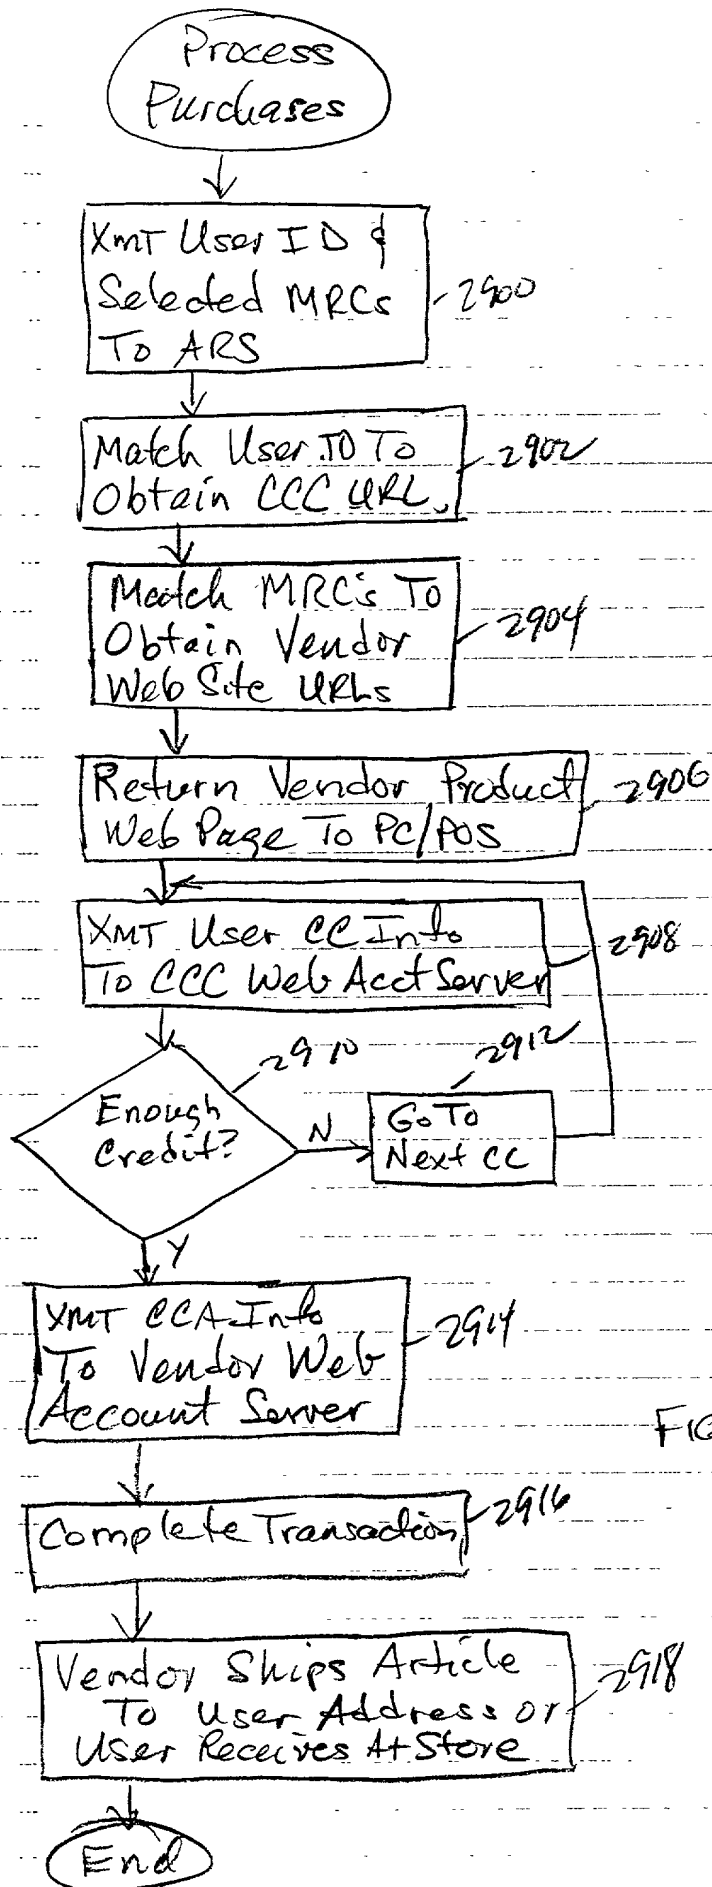 Process
Purchases
XMT User ID &
Selected MRCs
To ARS
2900
Match User ID To
Obtain CCC URL.
2902
Match MRC's To
Obtain Vendor
Web Site URLs
2904
Return Vendor Product
Web Page To PC/POS
2906
XMT User CC Info
To CCC Web Acct Server
2908
Enough
Credit?
2910
N
Go To
Next CC
2912
Y
XMT CCA Info
To Vendor Web
Account Server
2914
FIG
Complete Transaction
2916
Vendor Ships Article
To User Address or
User Receives At Store
2918
End